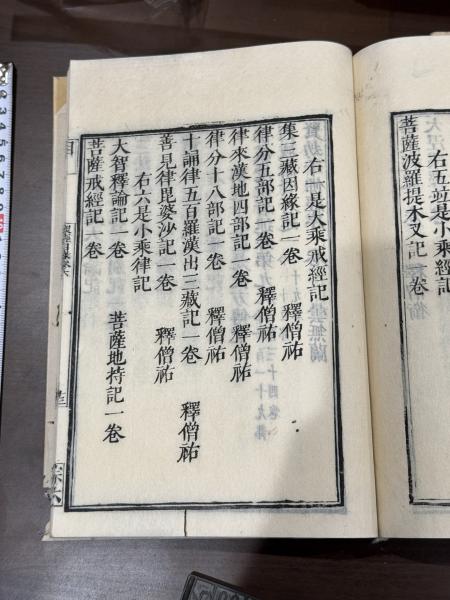 右五竝是小乘經記
菩薩波羅提木叉記一卷
右一是大乘戒經記
集三藏因緣記一卷 釋僧祐
律分五部記一卷 釋僧祐
律來漢地四部記一卷 釋僧祐
律分十八部記一卷 釋僧祐
十誦律五百羅漢出三藏記一卷 釋僧祐
善見律毘婆沙記一卷 釋僧祐
右六是小乘律記
大智釋論記一卷 菩薩地持記一卷
菩薩戒經記一卷